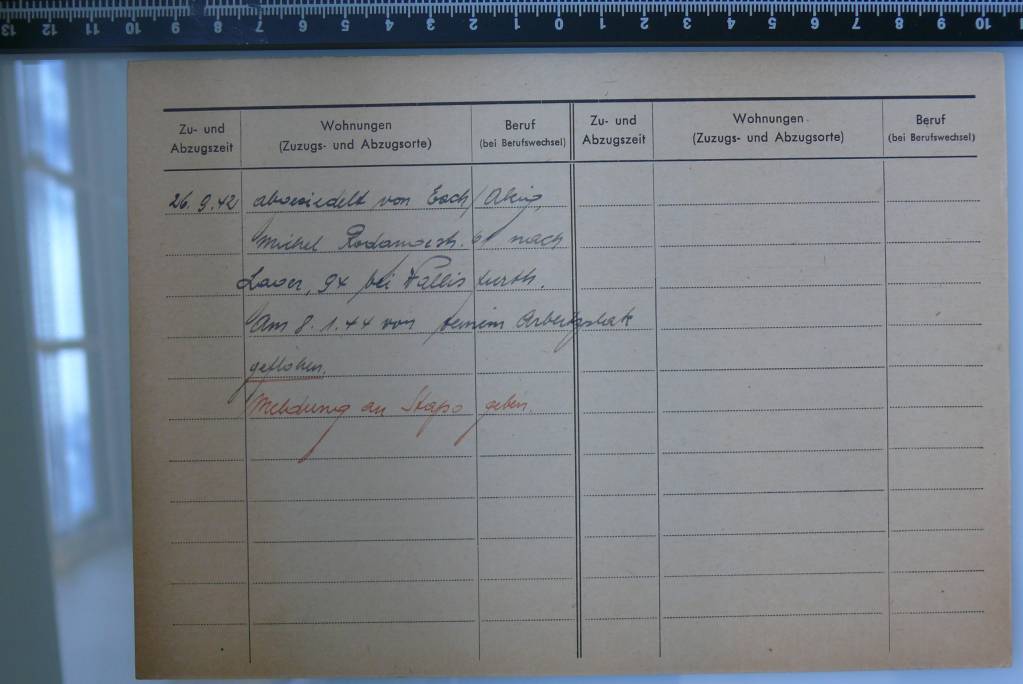 13 12 11 10 9 8 7 6 5 4 3 2 1 0 1 2 3 4 5 6 7 8 9 10
Zu- und Abzugszeit
Wohnungen (Zuzugs- und Abzugsorte)
Beruf (bei Berufswechsel)
Zu- und Abzugszeit
Wohnungen (Zuzugs- und Abzugsorte)
Beruf (bei Berufswechsel)
26.9.42 abgesiedelt von Esch/Alzig,
Michel Rodangestr. nach
Lager 94 bei
Am 8.1.44 von seinem Arbeitsplatz
geflohen.
Meldung an Stapo geben.